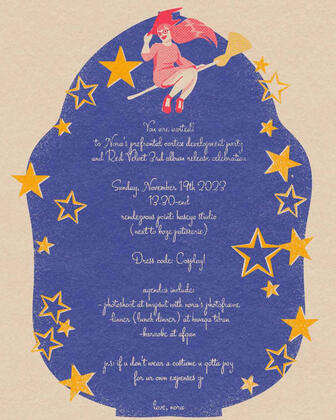 You are invited!
to Nora's prefrontal cortex development party
and Red Velvet 3rd album release celebration
Sunday, November 19th 2023
13.30-end
rendezvous point: kaseya studio
(next to koze patisserie)
Dress code: Cosplay!
agendas include:
photoshoot at with nora's photoprane
dinner (lunch dinner) at
karaoke at
p.s: if u don't wear a costume u gotta pay
for ur own expenses :p
love, nora